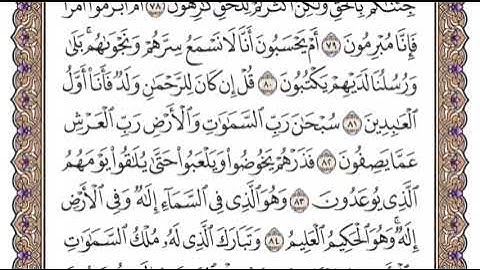 جِئْنَٰكُم بِٱلْحَقِّ وَلَٰكِنَّ أَكْثَرَكُمْ لِلْحَقِّ كَٰرِهُونَ ٧٨ أَمْ أَبْرَمُوٓا۟ أَمْرًا
فَإِنَّا مُبْرِمُونَ ٧٩ أَمْ يَحْسَبُونَ أَنَّا لَا نَسْمَعُ سِرَّهُمْ وَنَجْوَىٰهُم ۚ بَلَىٰ
وَرُسُلُنَا لَدَيْهِمْ يَكْتُبُونَ ٨٠ قُلْ إِن كَانَ لِلرَّحْمَٰنِ وَلَدٌ فَأَنَا۠ أَوَّلُ
ٱلْعَٰبِدِينَ ٨١ سُبْحَٰنَ رَبِّ ٱلسَّمَٰوَٰتِ وَٱلْأَرْضِ رَبِّ ٱلْعَرْشِ
عَمَّا يَصِفُونَ ٨٢ فَذَرْهُمْ يَخُوضُوا۟ وَيَلْعَبُوا۟ حَتَّىٰ يُلَٰقُوا۟ يَوْمَهُمُ
ٱلَّذِى يُوعَدُونَ ٨٣ وَهُوَ ٱلَّذِى فِى ٱلسَّمَآءِ إِلَٰهٌ وَفِى ٱلْأَرْضِ
إِلَٰهٌ ۚ وَهُوَ ٱلْحَكِيمُ ٱلْعَلِيمُ ٨٤ وَتَبَارَكَ ٱلَّذِى لَهُۥ مُلْكُ ٱلسَّمَٰوَٰتِ